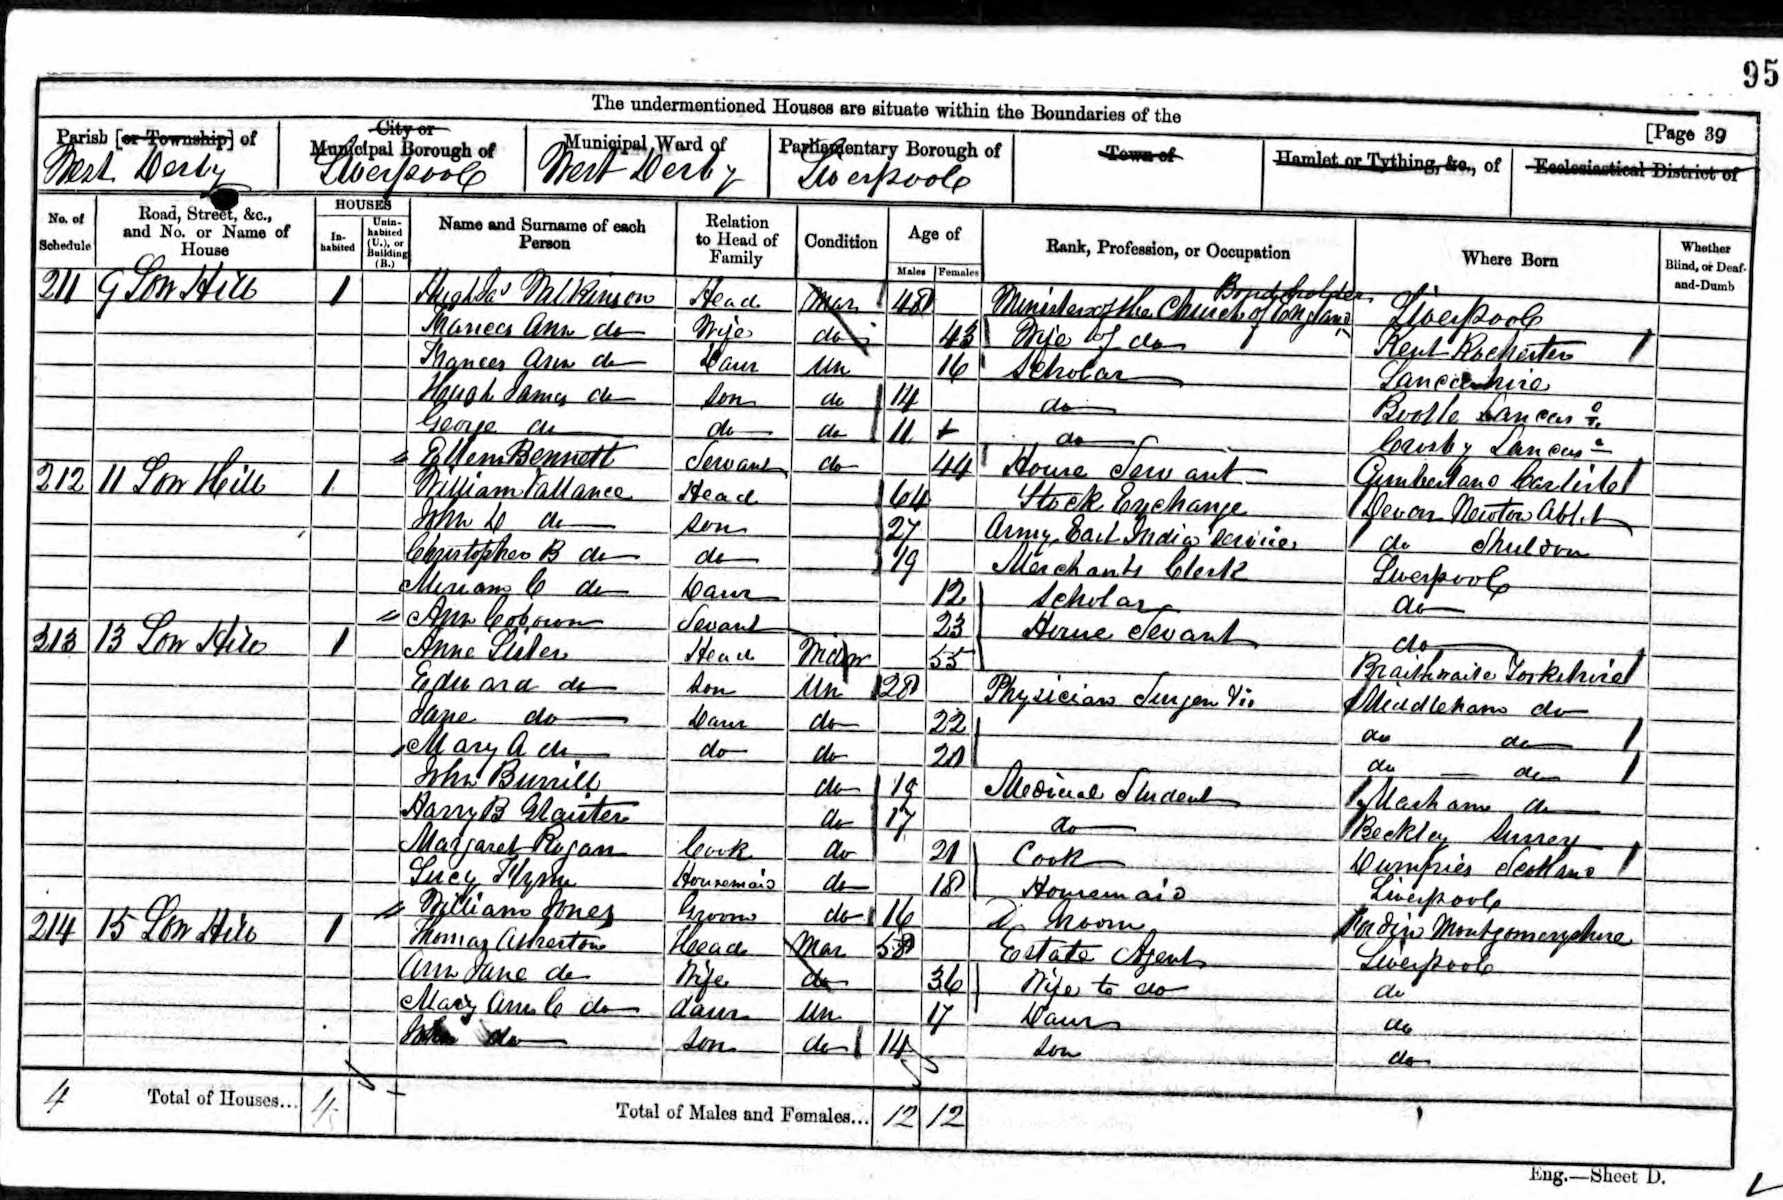 95
The undermentioned Houses are situate within the Boundaries of the
[Page 39
Parish [or Township] of City or Municipal Borough of Municipal Ward of Parliamentary Borough of Town of Hamlet or Tything, &c., of Ecclesiastical District of
West Derby Liverpool West Derby Liverpool
No. of Schedule Road, Street, &c., and No. or Name of House HOUSES Inhabited Uninhabited (U.), or Building (B.) Name and Surname of each Person Relation to Head of Family Condition Age of Males Females Rank, Profession, or Occupation Where Born Whether Blind, or Deaf-and-Dumb
211 9 Low Hill 1 Hugh Jas Wilkinson Head Mar 48 Minister of the Church of England Liverpool
Frances Ann do Wife do 43 Wife of do Kent Rochester
Frances Ann do Daur Un 16 Scholar Lancashire
Hugh James do Son do 14 do Bootle Lancas
George do do do 11 do Crosby Lancas
Ellen Bennett Servant do 44 House Servant Cumberland Carlisle
212 11 Low Hill 1 William Vallance Head 64 Stock Exchange Devon Newton Abbt
John D do Son 27 Army East India Service do
Christopher B do do 19 Merchants Clerk Liverpool
Miriam C do Daur 12 Scholar do
Ann Servant 23 House Servant do
213 13 Low Hill 1 Anne Lister Head Widow 55 Braithwaite Yorkshire
Edward do Son Un 28 Physician Surgeon Middleham do
Jane do Daur do 22 do do
Mary A do do do 20 do do
John Burrill do 19 Medical Student Masham do
Harry B do 17 do Beckley Surrey
Margaret Rogan Cook do 21 Cook Dumfries Scotland
Lucy Flynn Housemaid do 18 Housemaid Liverpool
William Jones Groom do 16 Groom Montgomeryshire
214 15 Low Hill 1 Thomas Atherton Head Mar 58 Estate Agent Liverpool
Ann Jane do Wife do 36 Wife to do do
Mary Ann C do daur Un 17 Daur do
John do Son do 14 Son do
4 Total of Houses... 4 Total of Males and Females... 12 12
Eng.—Sheet D.